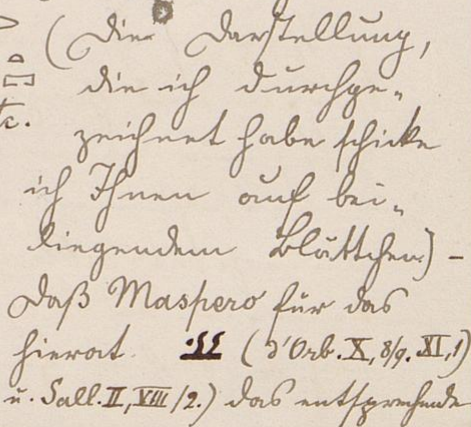 (Diese Darstellung,
die ich durchge-
zeichnet habe schicke
ich Ihnen auf bei-
liegendem Blättchen) -
Daß Maspero für das
hierat. (d'Orb. X, 8/9. XI, 1)
u. Sall. II, VIII/2.) das entsprechende